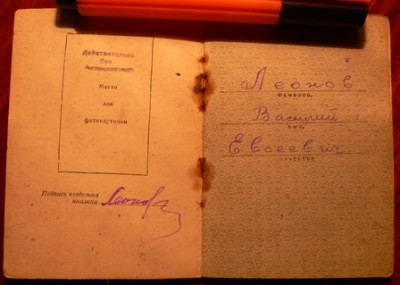 Действительно
без
Место
для
фотокарточки
Подпись владельца
книжки Леонов
Леонов
фамилия,
Василий
имя,
Евсеевич
отчество